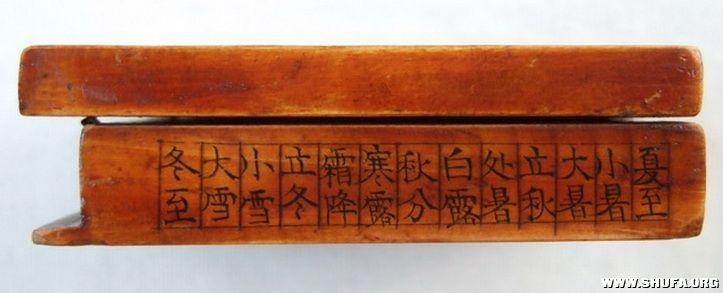 夏至
小暑
大暑
立秋
处暑
白露
秋分
寒露
霜降
立冬
小雪
大雪
冬至
WWW.SHUFA.ORG